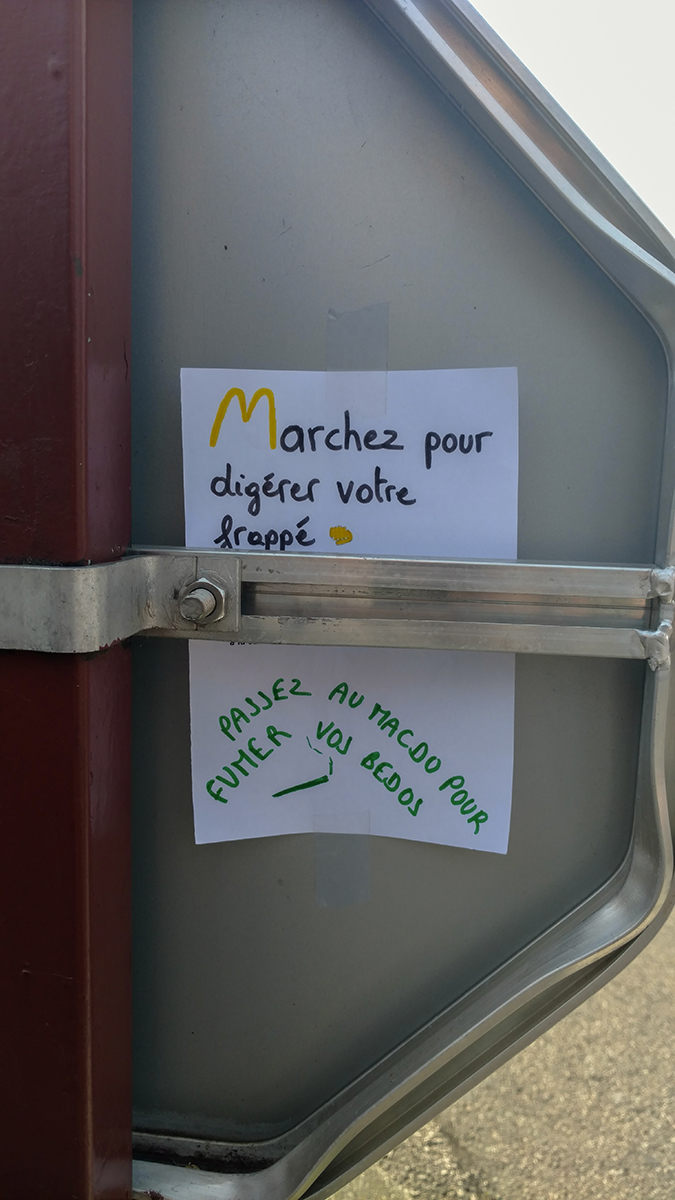 Marchez pour
digérer votre
frappé
PASSEZ AU MACDO POUR
FUMER VOS BEDOS